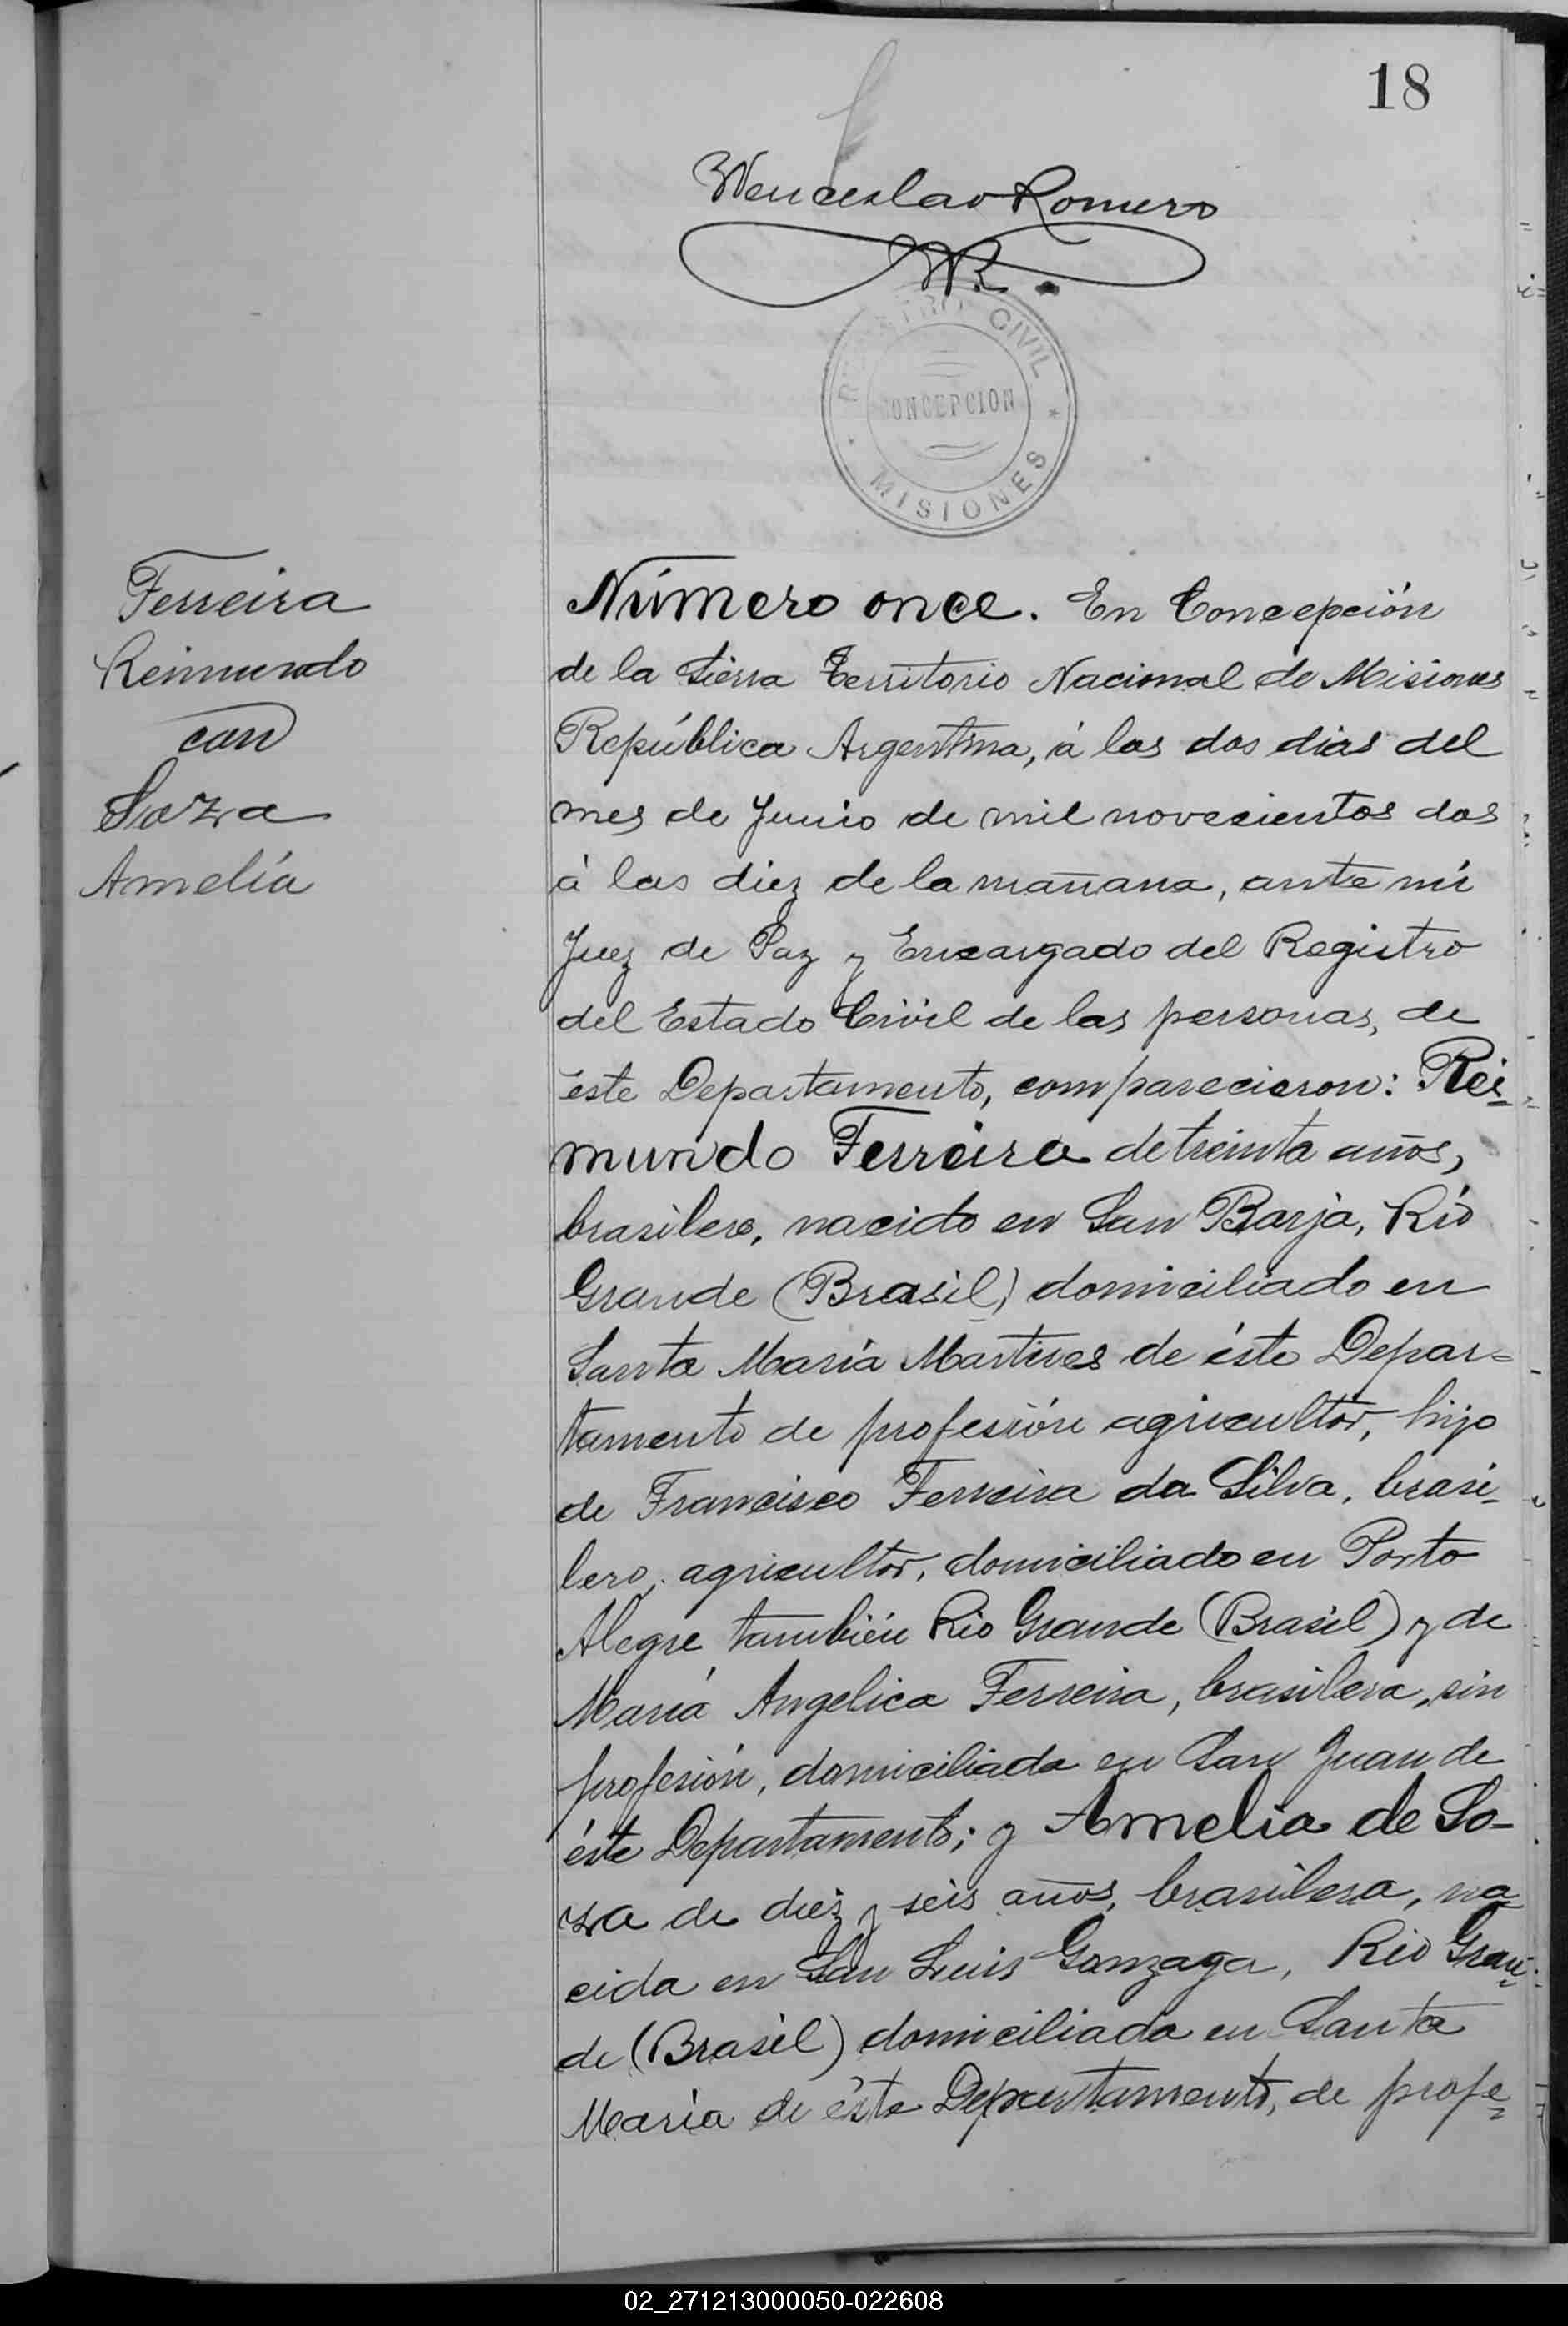 18
Wenceslao Romero
WR.
REGISTRO CIVIL
CONCEPCION
MISIONES
Ferreira
Reimundo
con
Soza
Amelía
Número once. En Concepción
de la Sierra Territorio Nacional de Misiones
República Argentina, á los dos dias del
mes de Junio de mil novecientos dos
á las diez de la mañana, ante mí
Juez de Paz y Encargado del Registro
del Estado Civil de las personas, de
éste Departamento, comparecieron: Rei-
mundo Ferreira de treinta años,
brasilero, nacido en San Borja, Río
Grande (Brasil) domiciliado en
Santa María Martires de éste Depar=
tamento de profesión agricultor, hijo
de Francisco Ferreira da Silva, brasi-
lero, agricultor, domiciliado en Porto
Alegre también Rio Grande (Brasil) y de
María Angelica Ferreira, brasilera, sin
profesión, domiciliada en San Juan de
éste Departamento; y Amelia de So-
za de diez y seis años, brasilera, na-
cida en San Luis Gonzaga, Rio Gran-
de (Brasil) domiciliada en Santa
María de éste Departamento, de profe-
02_271213000050-022608